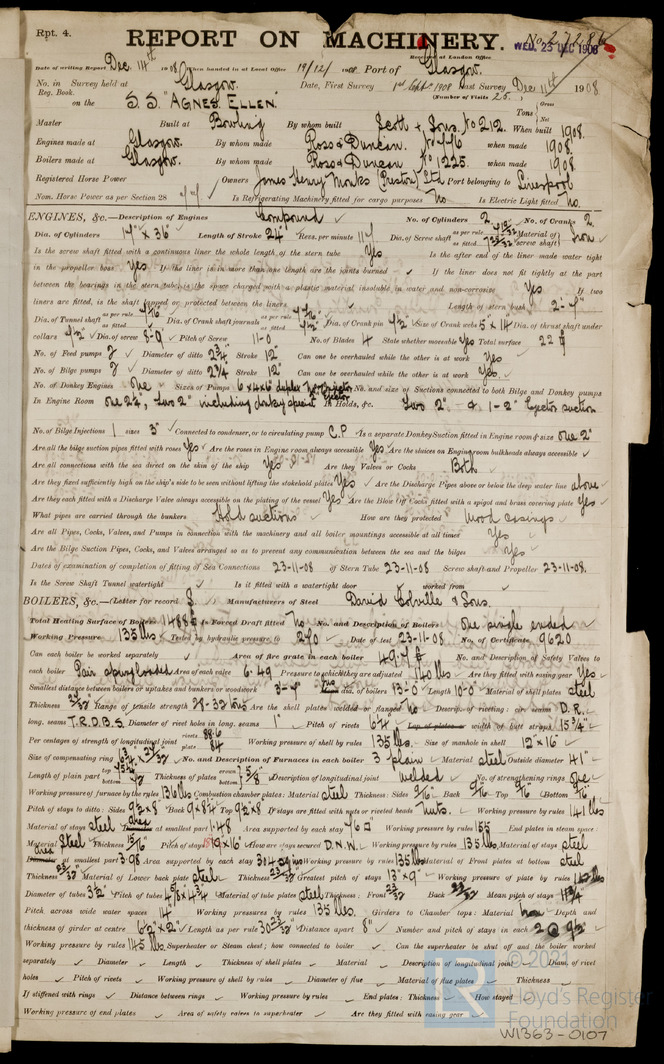 Rpt. 4.
REPORT ON MACHINERY. No. 27286
WED. 23 DEC 1908
Received at London Office
Date of writing Report Dec 14th 1908 When handed in at Local Office 19/12/1908 Port of Glasgow.
No. in Survey held at Glasgow. Date, First Survey 1st Sept 1908 Last Survey Dec 11th 1908
Reg. Book. (Number of Visits 25.)
on the S.S. "AGNES ELLEN." Tons Gross Net
Master Built at Bowling By whom built Scott & Sons. No 212. When built 1908.
Engines made at Glasgow. By whom made Ross & Duncan. No 776 when made 1908.
Boilers made at Glasgow. By whom made Ross & Duncan No 1225. when made 1908
Registered Horse Power Owners James Henry Monks (Preston) Ltd Port belonging to Liverpool
Nom. Horse Power as per Section 28 Is Refrigerating Machinery fitted for cargo purposes No Is Electric Light fitted No.
ENGINES, &c.—Description of Engines Compound No. of Cylinders 2 No. of Cranks 2
Dia. of Cylinders 17" x 36" Length of Stroke 24" Revs. per minute 117 Dia. of Screw shaft as per rule as fitted Material of screw shaft Iron
Is the screw shaft fitted with a continuous liner the whole length of the stern tube Yes Is the after end of the liner made water tight
in the propeller boss Yes If the liner is in more than one length are the joints burned If the liner does not fit tightly at the part
between the bearings in the stern tube, is the space charged with a plastic material insoluble in water and non-corrosive Yes If two
liners are fitted, is the shaft lapped or protected between the liners Length of stern bush 2'-7"
Dia. of Tunnel shaft as per rule as fitted Dia. of Crank shaft journals as per rule as fitted 7 1/2" Dia. of Crank pin 7 1/2" Size of Crank webs 5 x 14 Dia. of thrust shaft under
collars 7 1/2" Dia. of screw 8-9" Pitch of Screw 11-0 No. of Blades 4 State whether moveable Yes Total surface 22 ft
No. of Feed pumps 2 Diameter of ditto 2 3/4 Stroke 12" Can one be overhauled while the other is at work Yes
No. of Bilge pumps 2 Diameter of ditto 2 3/4 Stroke 12" Can one be overhauled while the other is at work Yes.
No. of Donkey Engines One Sizes of Pumps 6 x 4 x 6" duplex No. and size of Suctions connected to both Bilge and Donkey pumps
In Engine Room One 2 1/4", two 2" including donkey special In Holds, &c. Two 2" & 1-2" Ejector suction
No. of Bilge Injections 1 sizes 3" Connected to condenser, or to circulating pump C.P. Is a separate Donkey Suction fitted in Engine room & size One 2"
Are all the bilge suction pipes fitted with roses Yes Are the roses in Engine room always accessible Yes Are the sluices on Engine room bulkheads always accessible
Are all connections with the sea direct on the skin of the ship Yes Are they Valves or Cocks Both
Are they fixed sufficiently high on the ship's side to be seen without lifting the stokehold plates Yes Are the Discharge Pipes above or below the deep water line above
Are they each fitted with a Discharge Valve always accessible on the plating of the vessel Yes Are the Blow Off Cocks fitted with a spigot and brass covering plate Yes
What pipes are carried through the bunkers Hold suctions How are they protected Wood casings
Are all Pipes, Cocks, Valves, and Pumps in connection with the machinery and all boiler mountings accessible at all times Yes
Are the Bilge Suction Pipes, Cocks, and Valves arranged so as to prevent any communication between the sea and the bilges Yes
Dates of examination of completion of fitting of Sea Connections 23-11-08 of Stern Tube 23-11-08 Screw shaft and Propeller 23-11-08.
Is the Screw Shaft Tunnel watertight Is it fitted with a watertight door worked from
BOILERS, &c.—(Letter for record S.) Manufacturers of Steel David Colville & Sons.
Total Heating Surface of Boilers 1148 Is Forced Draft fitted No No. and Description of Boilers One single ended
Working Pressure 135 lbs Tested by hydraulic pressure to 270 Date of test 23-11-08 No. of Certificate 9620
Can each boiler be worked separately Area of fire grate in each boiler 49.7 ft No. and Description of Safety Valves to
each boiler Pair spring loaded Area of each valve 6.49 Pressure to which they are adjusted 140 lbs Are they fitted with easing gear Yes
Smallest distance between boilers or uptakes and bunkers or woodwork dia. of boilers 13-0" Length 10-0" Material of shell plates steel
Thickness 27/32 Range of tensile strength 28-32 tons Are the shell plates welded or flanged No Descrip. of riveting: cir. seams D.R.
long. seams T.R.D.B.S. Diameter of rivet holes in long. seams 1" Pitch of rivets 6 3/4 Lap of plates or width of butt straps 15 3/4"
Per centages of strength of longitudinal joint rivets 88.6 plate 84 Working pressure of shell by rules 135 lbs. Size of manhole in shell 12 x 16"
Size of compensating ring No. and Description of Furnaces in each boiler 3 plain Material steel Outside diameter 41"
Length of plain part top bottom Thickness of plates crown bottom 5/8 Description of longitudinal joint welded No. of strengthening rings One
Working pressure of furnace by the rules 136 lbs Combustion chamber plates: Material steel Thickness: Sides 9/16 Back 9/16 Top 9/16 Bottom
Pitch of stays to ditto: Sides 9 1/2 x 8" Back 9 x 8 1/2 Top 9 1/2 x 8 If stays are fitted with nuts or riveted heads Nuts. Working pressure by rules 141 lbs
Material of stays steel area at smallest part 1.48 Area supported by each stay 76 Working pressure by rules 155 End plates in steam space:
Material Steel Thickness 15/16" Pitch of stays 19 x 16" How are stays secured D.N.W. Working pressure by rules 135 lbs. Material of stays steel
area Diameter at smallest part 3.98 Area supported by each stay 304 Working pressure by rules 135 lbs Material of Front plates at bottom steel
Thickness Material of Lower back plate steel Thickness 23/32 Greatest pitch of stays 13" x 9" Working pressure of plate by rules
Diameter of tubes 3 1/2" Pitch of tubes 4 5/8 x 4 3/4 Material of tube plates steel Thickness: Front 23/32 Back 23/32 Mean pitch of stays
Pitch across wide water spaces 14" Working pressures by rules 135 lbs. Girders to Chamber tops: Material Iron Depth and
thickness of girder at centre 6 1/2" x 2" Length as per rule Distance apart 8" Number and pitch of stays in each 2 @ 9 1/2"
Working pressure by rules 145 lbs Superheater or Steam chest; how connected to boiler Can the superheater be shut off and the boiler worked
separately Diameter Length Thickness of shell plates Material Description of longitudinal joint Diam. of rivet
holes Pitch of rivets Working pressure of shell by rules Diameter of flue Material of flue plates Thickness
If stiffened with rings Distance between rings Working pressure by rules End plates: Thickness How stayed
Working pressure of end plates Area of safety valves to superheater Are they fitted with easing gear
© 2021
LR
Lloyd's Register
Foundation
W1363-0107